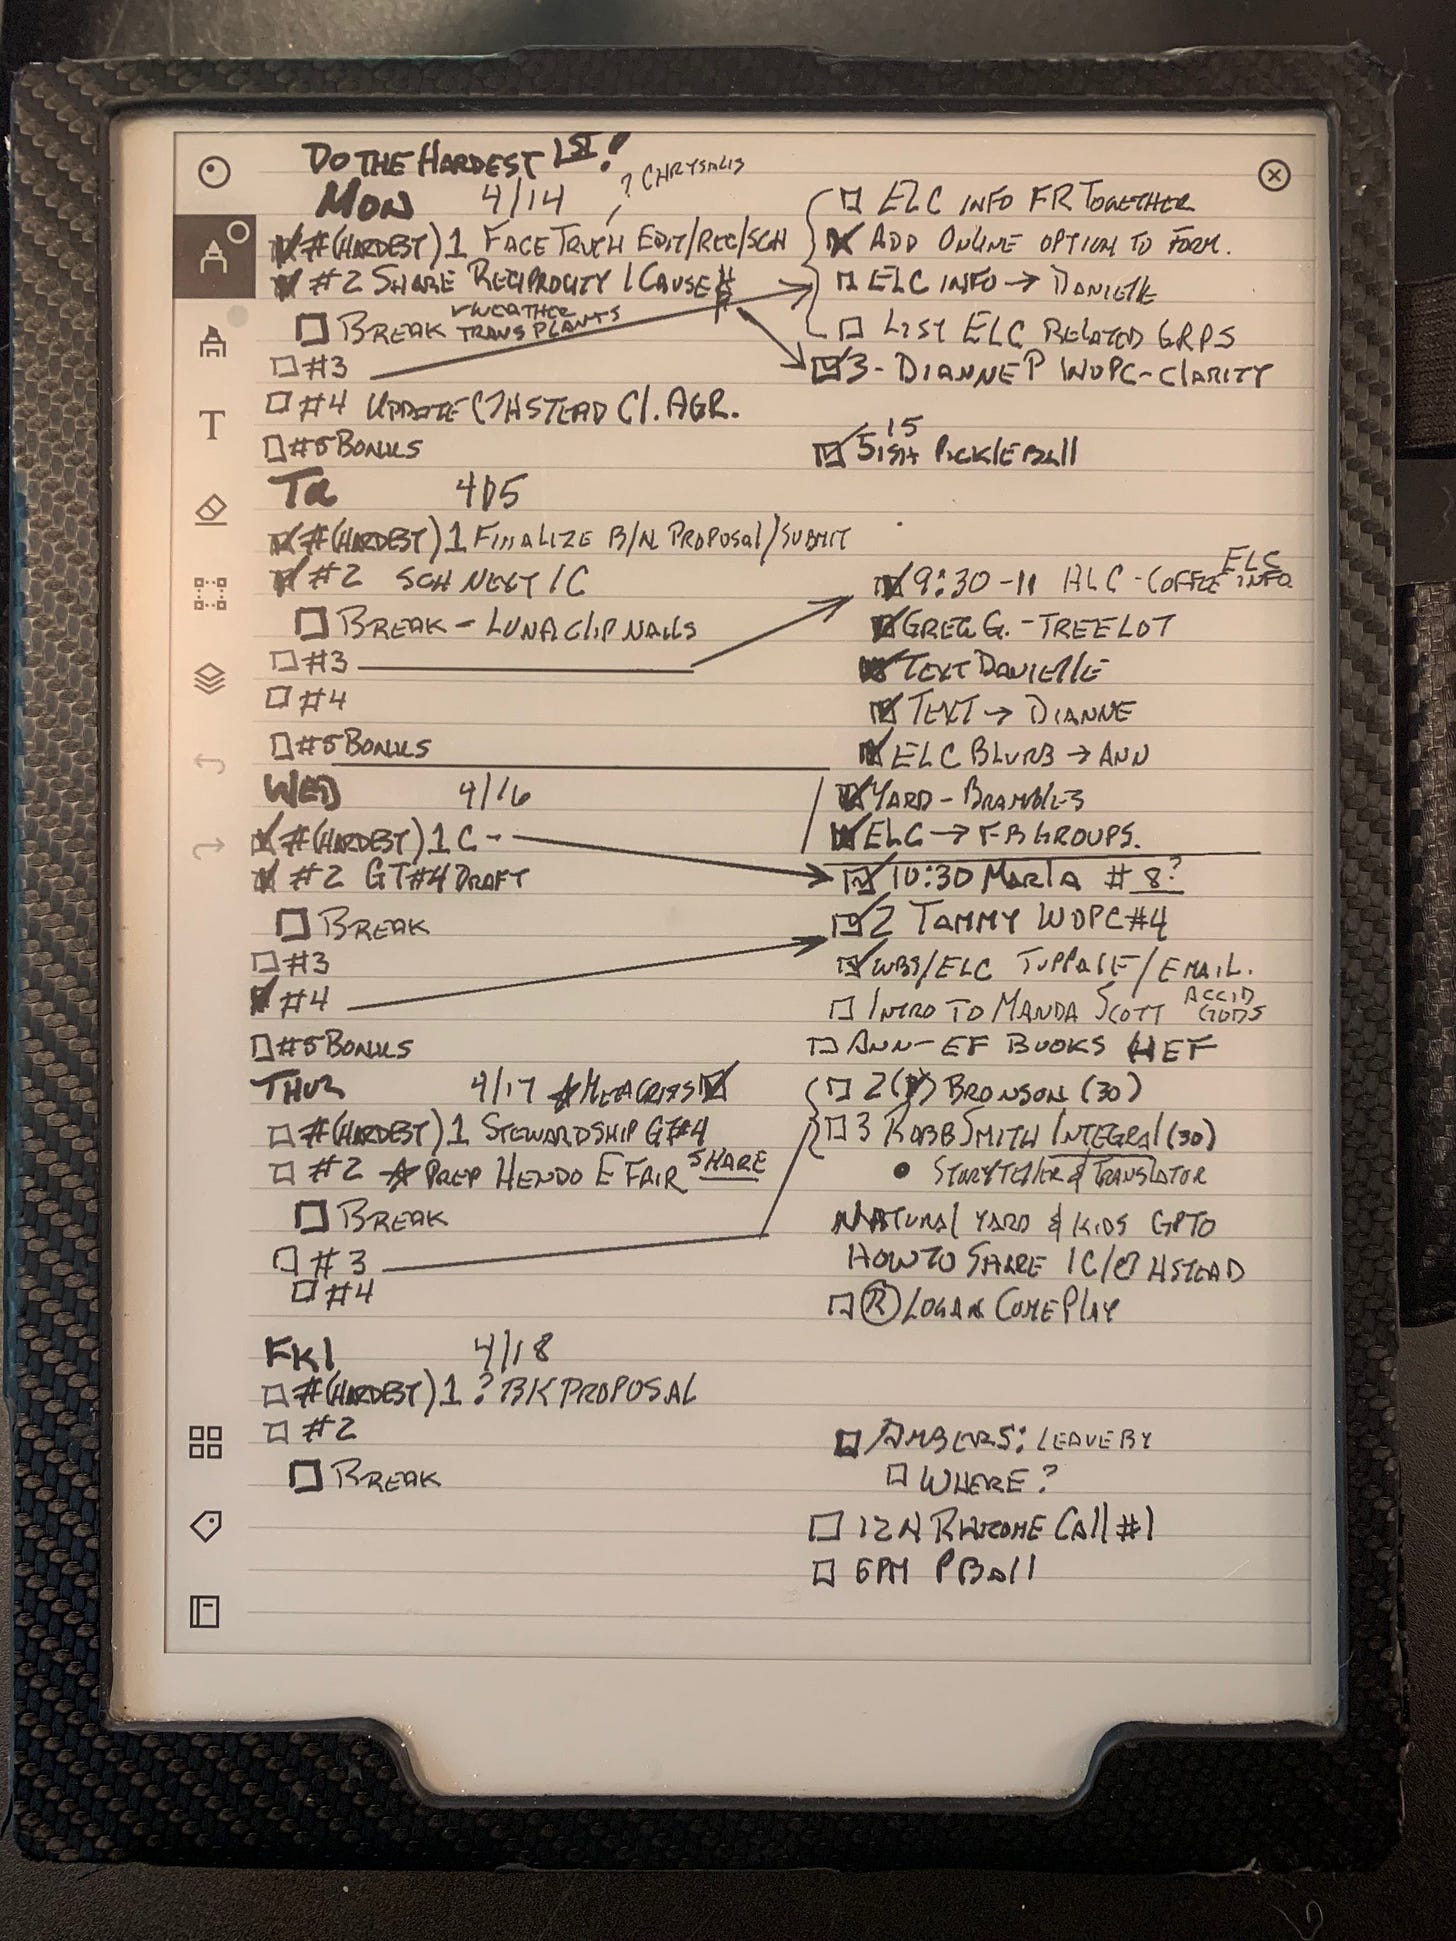 DO THE HARDEST 1ST!
? CHRYSALIS
MON 4/14
#(HARDEST) 1 FACE TRUTH EDIT/REC/SCH
#2 SHARE RECIPROCITY / CAUSE
BREAK WEATHER TRANSPLANTS
#3
#4 UPDATE HSTEAD CI. AGR.
#5 BONUS
ELC INFO FR TOGETHER
ADD ONLINE OPTION TO FORM.
ELC INFO → DANIELLE
LIST ELC RELATED GRPS
3 - DIANNE P WOPC - CLARITY
15
5ISH PICKLEBALL
TU 4/15
#(HARDEST) 1 FINALIZE B/N PROPOSAL/SUBMIT
#2 SCH NEXT IC
BREAK - LUNA CLIP NAILS
#3
#4
#5 BONUS
9:30-11 ALC - COFFEE ELC INFO
GREG G. - TREE LOT
TEXT DANIELLE
TEXT → DIANNE
ELC BLURB → ANN
YARD - BRAMBLES
ELC → FB GROUPS.
WED 4/16
#(HARDEST) 1 C -
#2 GT#4 DRAFT
BREAK
#3
#4
#5 BONUS
10:30 MARTA # 8?
2 TAMMY WOPC #4
WBS/ELC /EMAIL.
INTRO TO MANDA SCOTT ACCID GODS
ANN - EF BOOKS HEF
THUR 4/17 #METACRISIS
#(HARDEST) 1 STEWARDSHIP GT#4
#2 ☆ PREP HENDO E FAIR SHARE
BREAK
#3
#4
2 BRONSON (30)
3 ROBB SMITH INTEGRAL (30)
• STORYTELLER & TRANSLATOR
NATURAL YARD & KIDS
HOW TO SHARE IC/ HSTEAD
Ⓡ LOGAN COME PLAY
FRI 4/18
#(HARDEST) 1 ? BK PROPOSAL
#2
BREAK
AMBERS: LEAVE BY
WHERE?
12N RHIZOME CALL #1
6PM PBALL